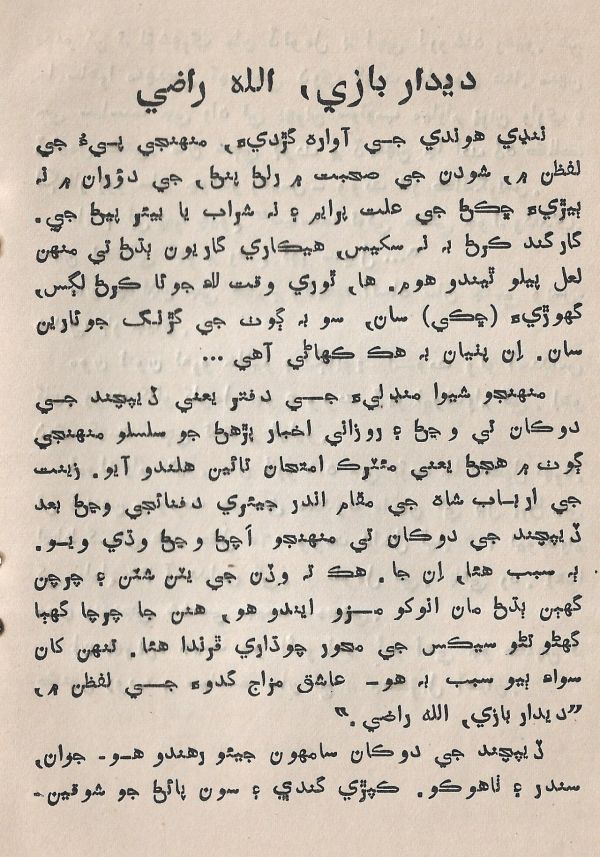 ديدار بازي، الله راضي
ننڍي هوندي جي آواره گرديءَ، منهنجي پيءُ جي
لفظن ۾، شودن جي صحبت ۾ رلڻ پنڻ، جي دؤران ۾ نه
ٻيڙيءَ ڇڪڻ جي علت پرايم ۽ نہ شراب يا بيئر پيئڻ جي.
گارگند ڪرڻ بہ نہ سکيس، هيڪاري گاريون ٻڌڻ تي منهن
لعل پيلو ٿيندو هوم. ها، ٿوري وقت لاءِ جوئا ڪرڻ لڳس،
گهوڙيءَ (ڇڪي) سان، سو بہ ڳوٺ جي گڙنگ جوئارين
سان. اِن پٺيان بہ هڪ ڪهاڻي آهي ...
منهنجو شيوا منڊليءَ جي دفتر يعني ڏيپچند جي
دوڪان تي وڃڻ ۽ روزاني اخبار پڙهڻ جو سلسلو منهنجي
ڳوٺ ۾ هجڻ يعني مئٽرڪ امتحان تائين هلندو آيو. زينت
جي ارباب شاهہ جي مقام اندر جيئري دفنائجي وڃڻ بعد
ڏيپچند جي دوڪان تي منهنجو اَچڻ وڃڻ وڌي ويو.
ٻہ سبب هئا، اِن جا. هڪ تہ وڏن جي يٽن شٽن ۽ چرچن
گهٻن ٻڌڻ مان انوکو مزو ايندو هو، هنن جا چرچا گهٻا
گهڻو تڻو سيڪس جي محور چوڌاري ڦرندا هئا. تنهن کان
سواءِ ٻيو سبب بہ هو۔ عاشق مزاج گدوءَ جي لفظن ۾،
”ديدار بازي، الله راضي.“
ڏيپچند جي دوڪان سامهون جيئو رهندو هو۔ جوان،
سندر ۽ ٺاهوڪو. ڪپڙي گندي ۽ سون پائڻ جو شوقين۔